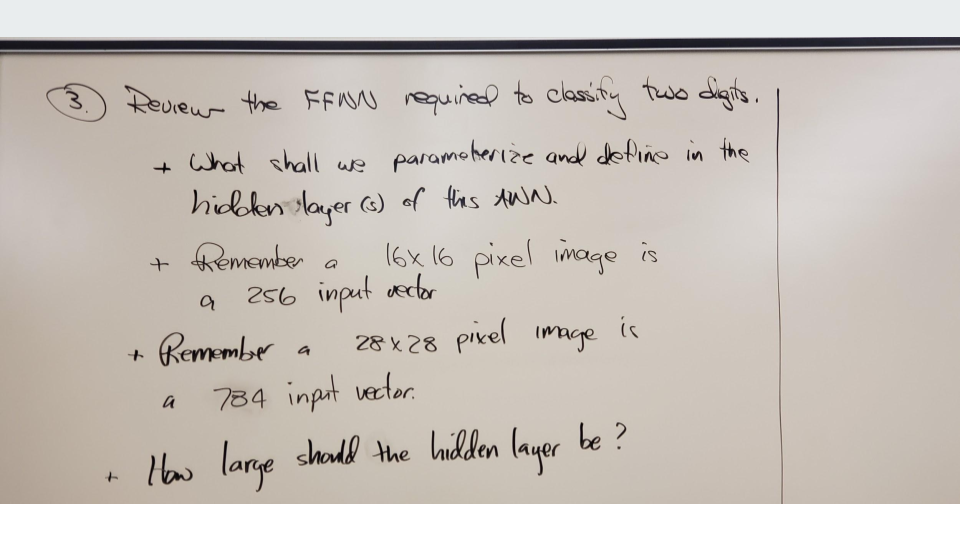 3. Review the FFNN required to classify two digits.
+ What shall we parameterize and define in the
hidden layer(s) of this ANN.
+ Remember a 16x16 pixel image is
a 256 input vector
+ Remember a 28x28 pixel image is
a 784 input vector.
+ How large should the hidden layer be?